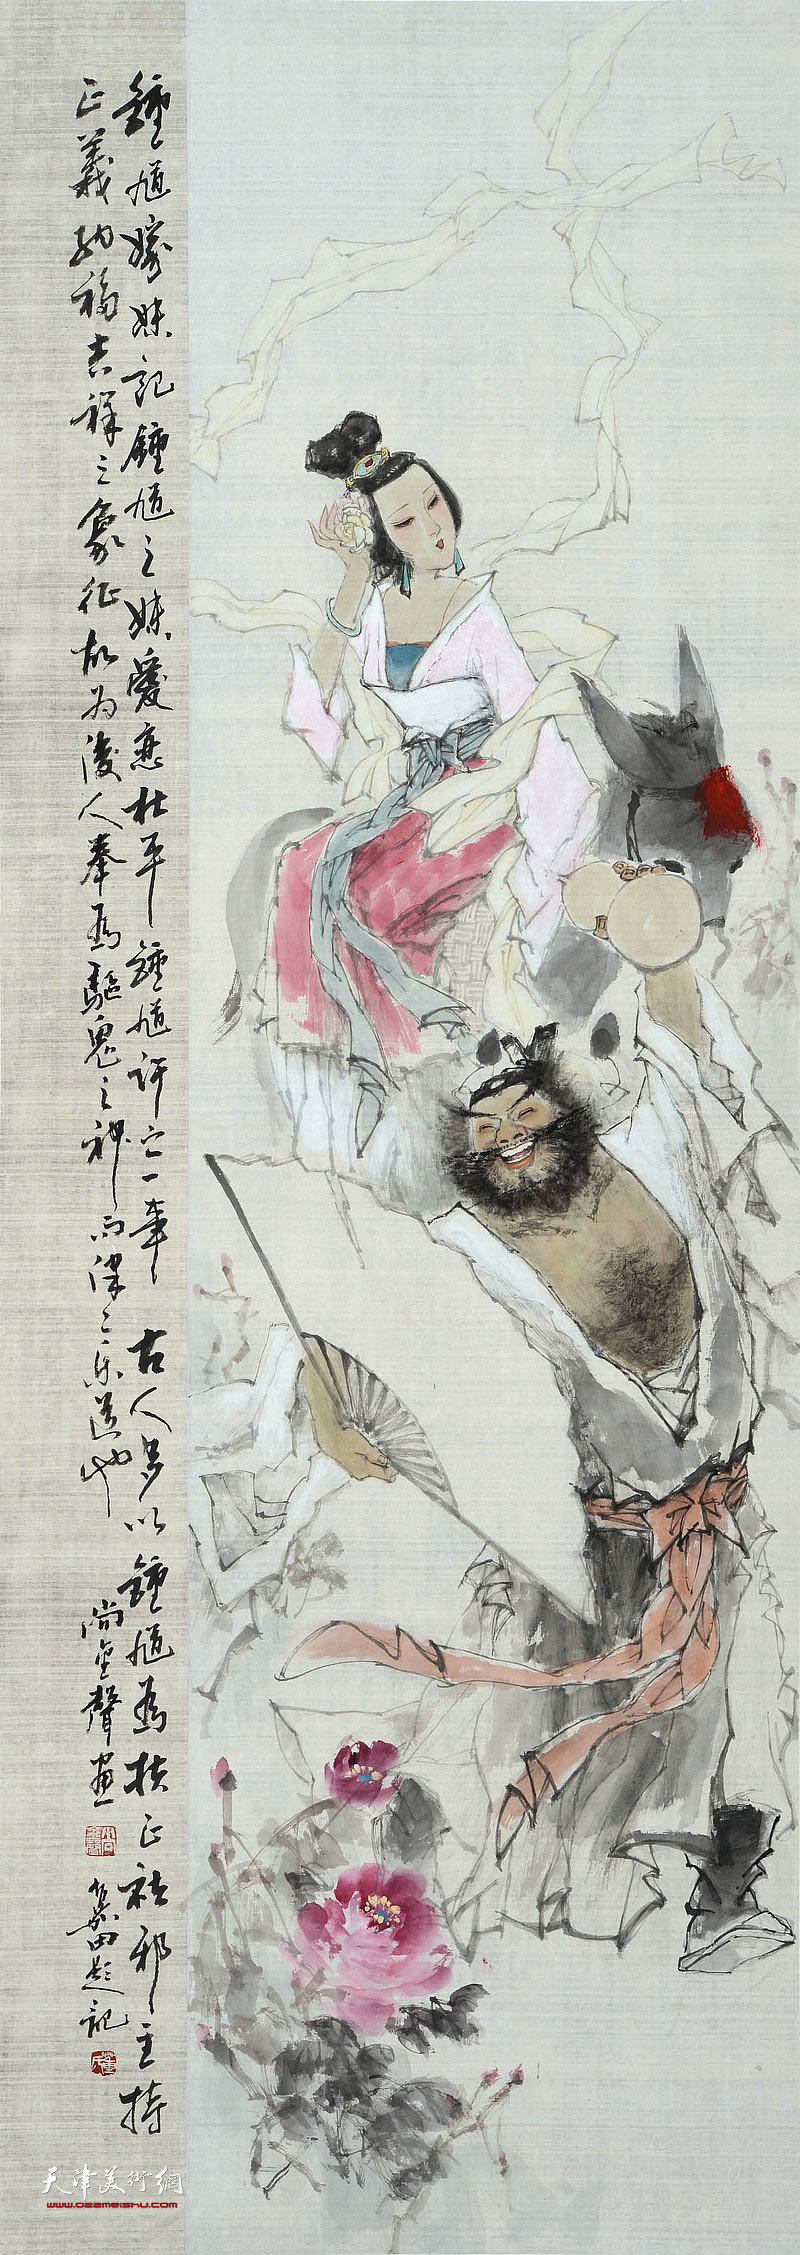 鍾馗嫁妹記鍾馗之妹愛恋杜平鍾馗許之一牽古人多以鍾馗為扶正祛邪主持
正義納福吉祥之象征故为後人奉為驅鬼之神而津々乐道也
尚金聲画
慕田题記
天津美術網
www.022meishu.com